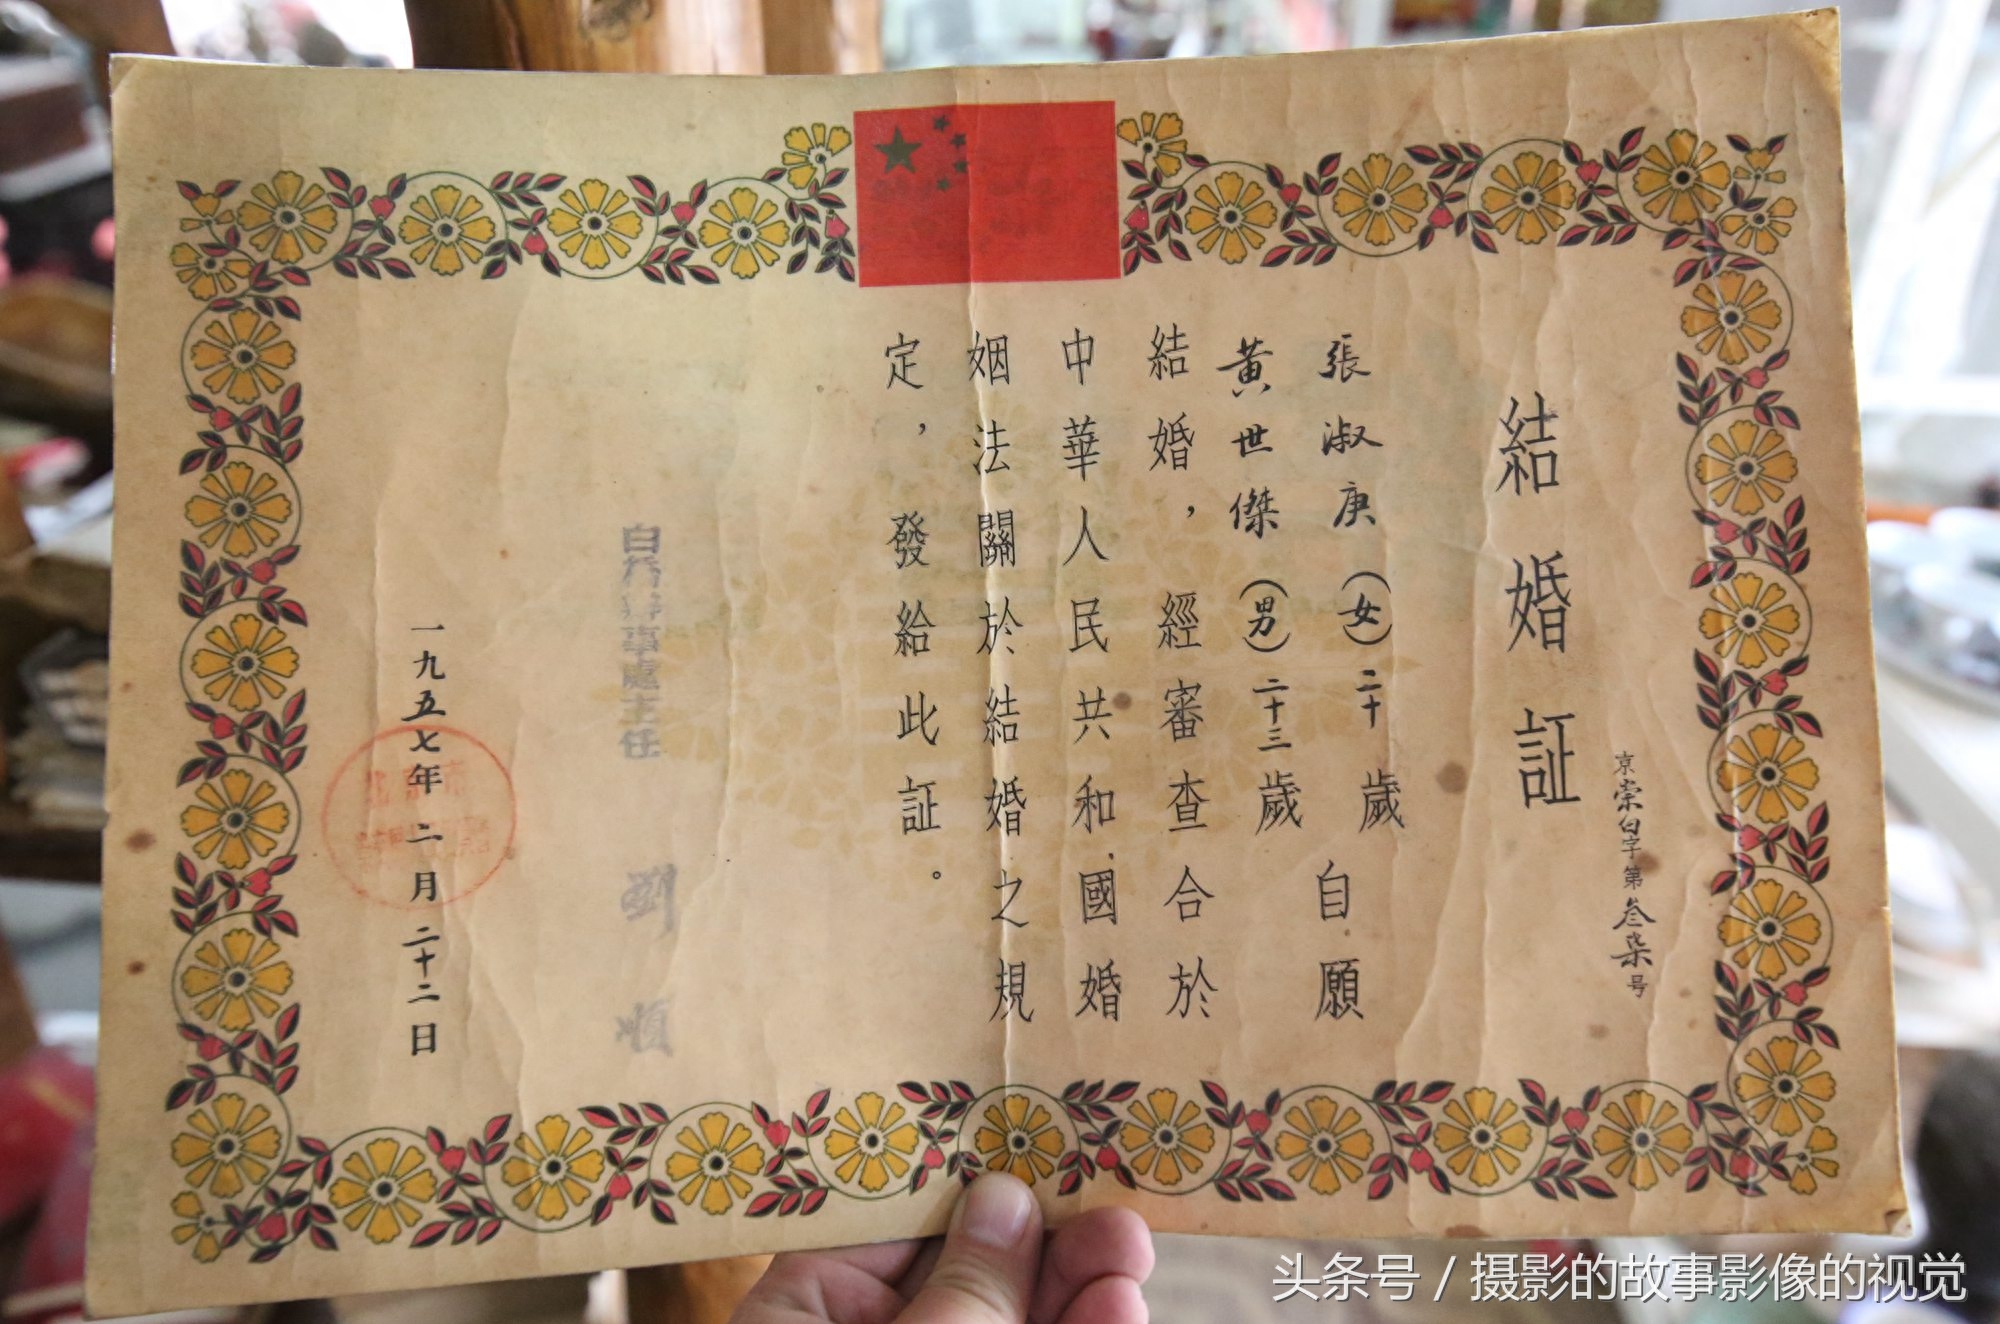 結婚証
京崇白字第叁柒号
張淑庚(女)二十歲
黃世傑(男)二十三歲自願
結婚，經審查合於
中華人民共和國婚
姻法關於結婚之規
定，發給此証。
辦事處主任 劉順
一九五七年二月二十二日
头条号 / 摄影的故事影像的视觉